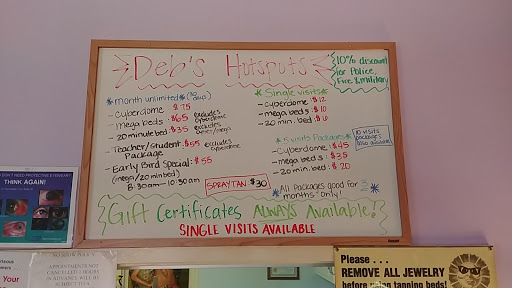 Deb's Hotspots
10% discount
for Police,
Fire & military
*month unlimited*
- cyberdome $75
- mega beds: $65 excludes cyberdome
- 20 minute bed $35 excludes
- Teacher/Student $55 excludes cyberdome
Package
- Early Bird Special: $55
(mega/20 min bed)
8:30am - 10:30am
SPRAY TAN $30
*Single visits*
- cyberdome: $12
- mega beds: $10
- 20 min. bed: $6
*5 visits Packages*
- Cyberdome: $45
- mega beds: $35
- 20 min. bed: $20
10 visits
packages
also available
*All Packages good for
months only!
Gift Certificates ALWAYS Available!!
SINGLE VISITS AVAILABLE
DON'T NEED PROTECTIVE EYEWEAR?
THINK AGAIN!
APPOINTMENTS NOT
CANCELLED 2 HOURS
IN ADVANCE WILL BE
SUBJECT TO A
Please . . .
REMOVE ALL JEWELRY
before using tanning beds!